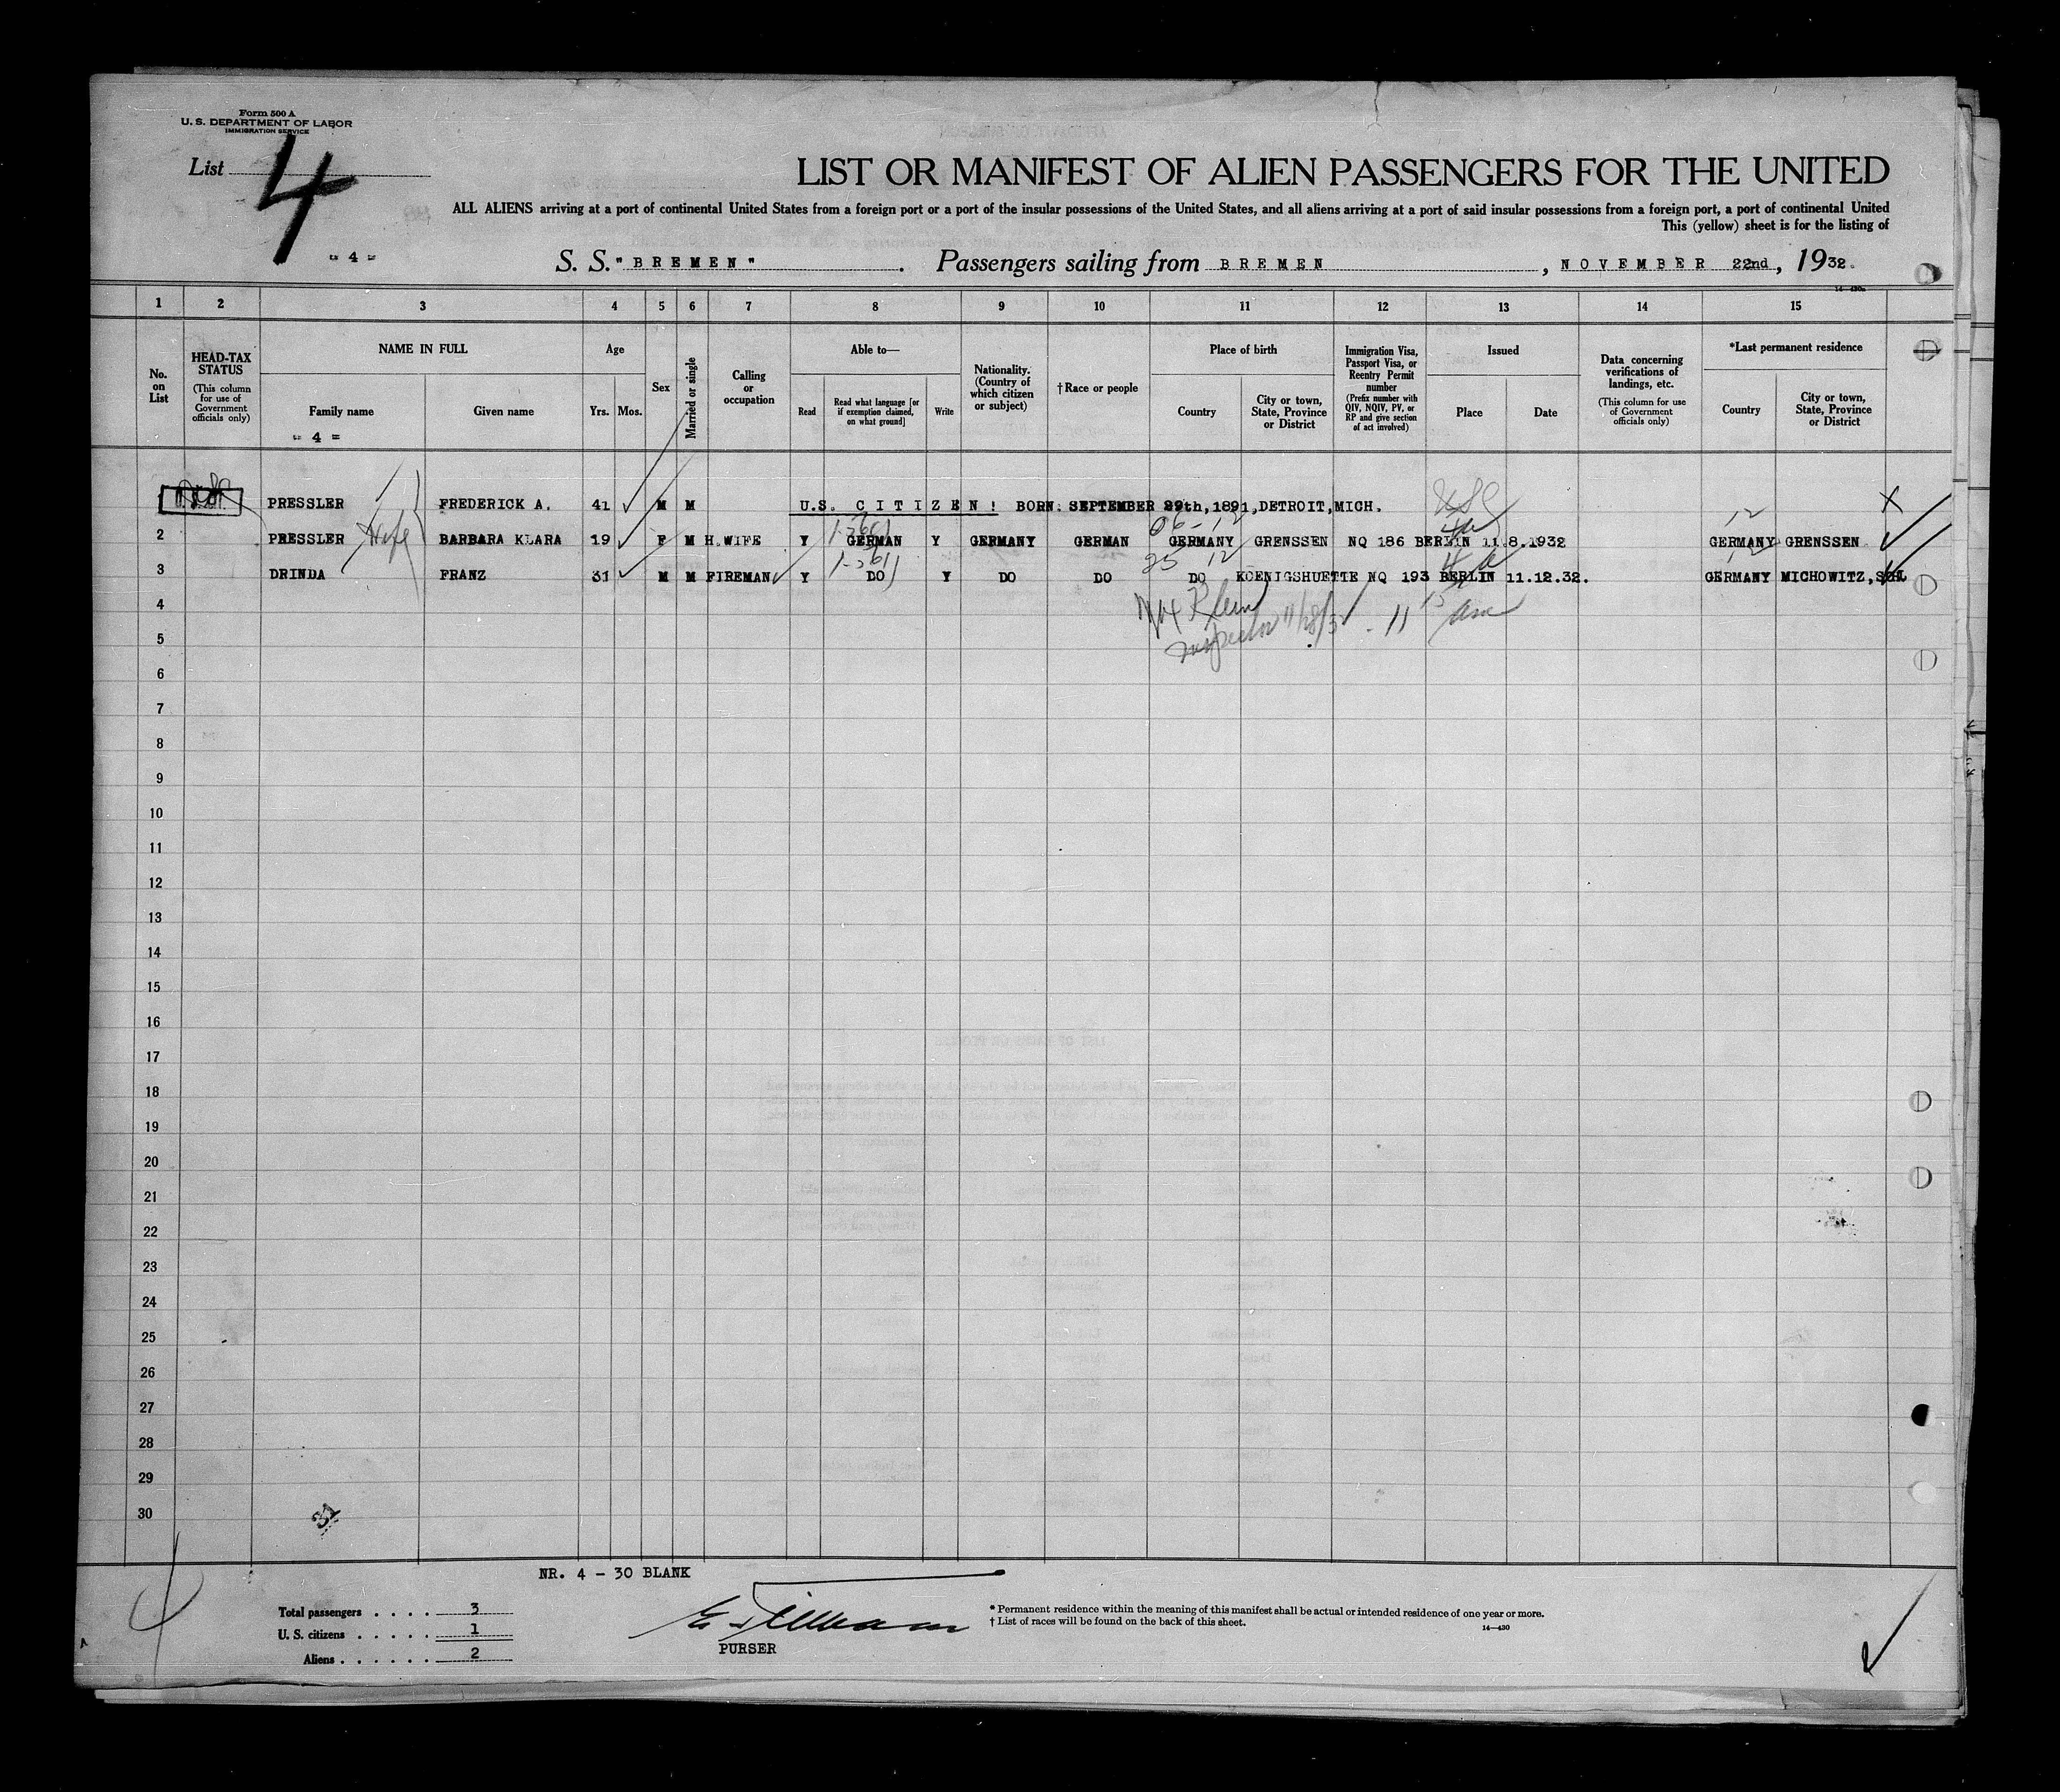 Form 500 A
U. S. DEPARTMENT OF LABOR
IMMIGRATION SERVICE
List 4
LIST OR MANIFEST OF ALIEN PASSENGERS FOR THE UNITED
ALL ALIENS arriving at a port of continental United States from a foreign port or a port of the insular possessions of the United States, and all aliens arriving at a port of said insular possessions from a foreign port, a port of continental United
This (yellow) sheet is for the listing of
= 4 =
S. S. "BREMEN". Passengers sailing from BREMEN, NOVEMBER 22nd, 1932.
14—430a
1 2 3 4 5 6 7 8 9 10 11 12 13 14 15
No. on List
HEAD-TAX STATUS (This column for use of Government officials only)
NAME IN FULL
Family name
Given name
Age
Yrs. Mos.
Sex
Married or single
Calling or occupation
Able to—
Read
Read what language [or if exemption claimed, on what ground]
Write
Nationality. (Country of which citizen or subject)
†Race or people
Place of birth
Country
City or town, State, Province or District
Immigration Visa, Passport Visa, or Reentry Permit number (Prefix number with QIV, NQIV, PV, or RP and give section of act involved)
Issued
Place
Date
Data concerning verifications of landings, etc. (This column for use of Government officials only)
*Last permanent residence
Country
City or town, State, Province or District
= 4 =
PRESSLER FREDERICK A. 41 M M U.S. CITIZEN! BORN: SEPTEMBER 29th,1891,DETROIT,MICH. USC
06-12 12
2 PRESSLER Wife BARBARA KLARA 19 F M H.WIFE Y GERMAN Y GERMANY GERMAN GERMANY GRENSSEN NQ 186 BERLIN 11.8.1932 GERMANY GRENSSEN
25 12
3 DRINDA FRANZ 31 M M FIREMAN Y DO Y DO DO DO KOENIGSHUETTE NQ 193 BERLIN 11.12.32. GERMANY MICHOWITZ,
4 Klein
5 Inspector 11/28/32 11 15 am
6
7
8
9
10
11
12
13
14
15
16
17
18
19
20
21
22
23
24
25
26
27
28
29
30
NR. 4 - 30 BLANK
Total passengers . . . . 3
U. S. citizens . . . . . 1
Aliens . . . . . . 2
PURSER
* Permanent residence within the meaning of this manifest shall be actual or intended residence of one year or more.
† List of races will be found on the back of this sheet.
14—430